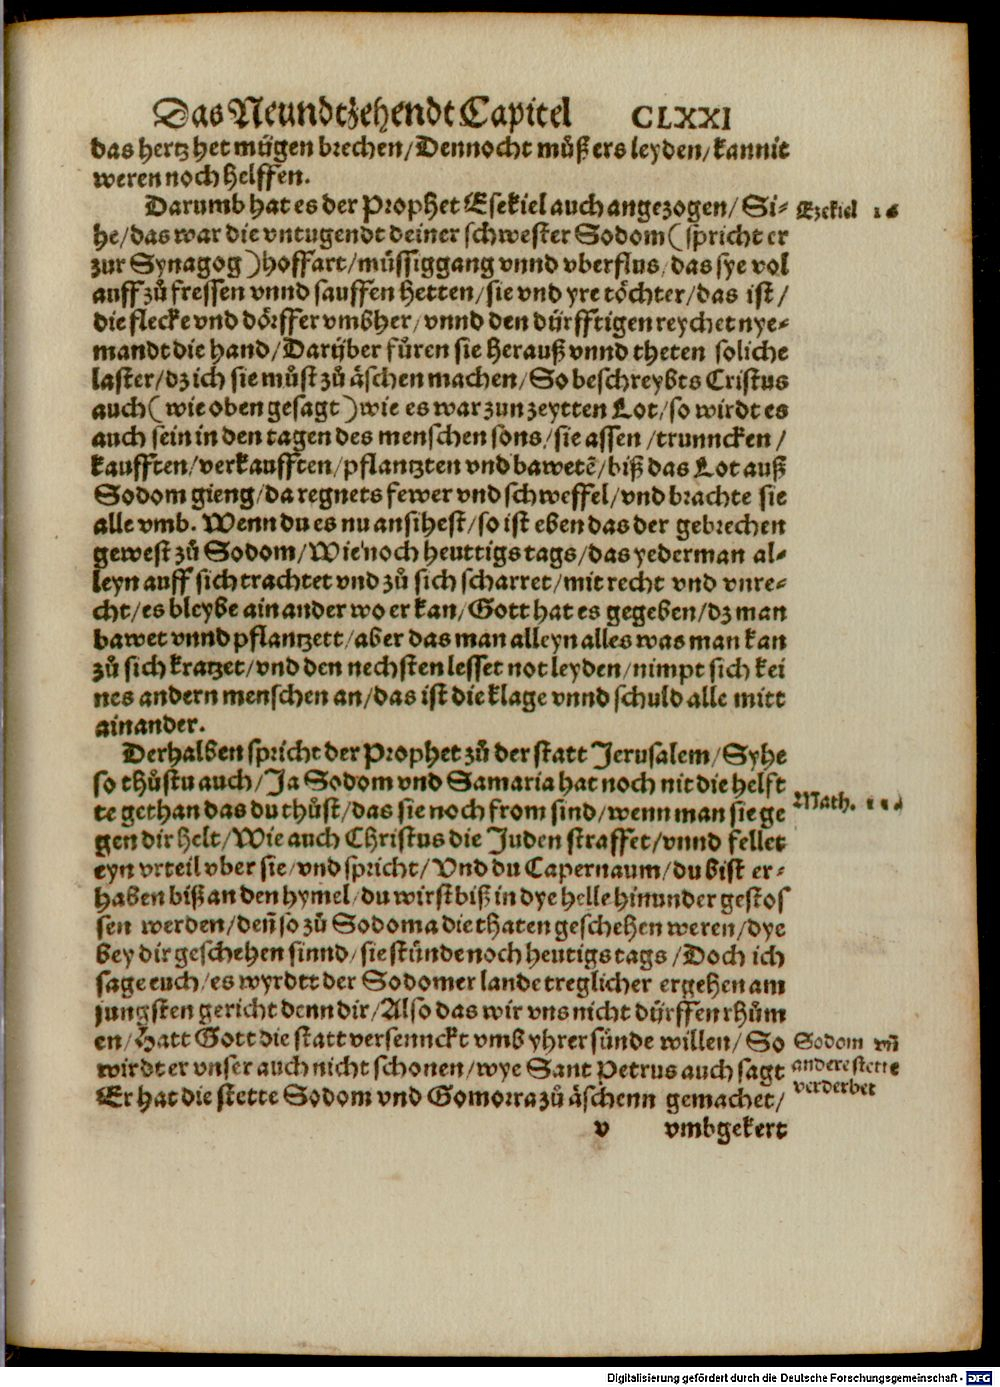 Das Neundtzehendt Capitel CLXXI
das hertz het mügen brechen/Dennocht můß ers leyden/kan nit
weren noch helffen.
Darumb hat es der Prophet Esekiel auch angezogen/Si- Ezekiel 16
he/das war die vntugendt deiner schwester Sodom (spricht er
zur Synagog) hoffart/müssiggang vnnd vberflus/das sye vol
auff zů fressen vnnd sauffen hetten/sie vnd yre töchter/das ist/
die flecke vnd dörffer vmbher/vnnd den dürfftigen reychet nye-
mandt die hand/Darüber fůren sie herauß vnnd theten soliche
laster/dz ich sie můst zů äschen machen/So beschreybts Cristus
auch (wie oben gesagt) wie es war zun zeytten Lot/so wirdt es
auch sein in den tagen des menschen sons/sie assen/trunncken/
kaufften/verkaufften/pflantzten vnd bawetē/biß das Lot auß
Sodom gieng/da regnets fewer vnd schweffel/vnd brachte sie
alle vmb. Wenn du es nu ansihest/so ist eben das der gebrechen
gewest zů Sodom/Wie noch heuttigs tags/das yederman al-
leyn auff sich trachtet vnd zů sich scharret/mit recht vnd vnre-
cht/es bleybe ain ander wo er kan/Gott hat es gegeben/dz man
bawet vnnd pflantzett/aber das man alleyn alles was man kan
zů sich kratzet/vnd den nechsten lesset not leyden/nimpt sich kei
nes andern menschen an/das ist die klage vnnd schuld alle mitt
ainander.
Derhalben spricht der Prophet zů der statt Jerusalem/Syhe
so thůstu auch/Ja Sodom vnd Samaria hat noch nit die helft
te gethan das du thůst/das sie noch from sind/wenn man sie ge Math. 11.
gen dir helt/Wie auch Christus die Juden straffet/vnnd fellet
eyn vrteil vber sie/vnd spricht/Vnd du Capernaum/du bist er-
haben biß an den hymel/du wirst biß in dye helle hinunder gestos
sen werden/deñ so zů Sodoma die thaten geschehen weren/dye
bey dir geschehen sinnd/sie stünde noch heutigs tags/Doch ich
sage euch/es wyrdtt der Sodomer lande treglicher ergehen am
jungsten gericht denn dir/Also das wir vns nicht dürffen rhům
en/Hatt Gott die statt versennckt vmb yhrer sünde willen/So Sodom vñ
wirdt er vnser auch nicht schonen/wye Sant Petrus auch sagt andere stette
Er hat die stette Sodom vnd Gomorra zů äschenn gemachet/ verderbet
v vmbgekert
Digitalisierung gefördert durch die Deutsche Forschungsgemeinschaft - DFG